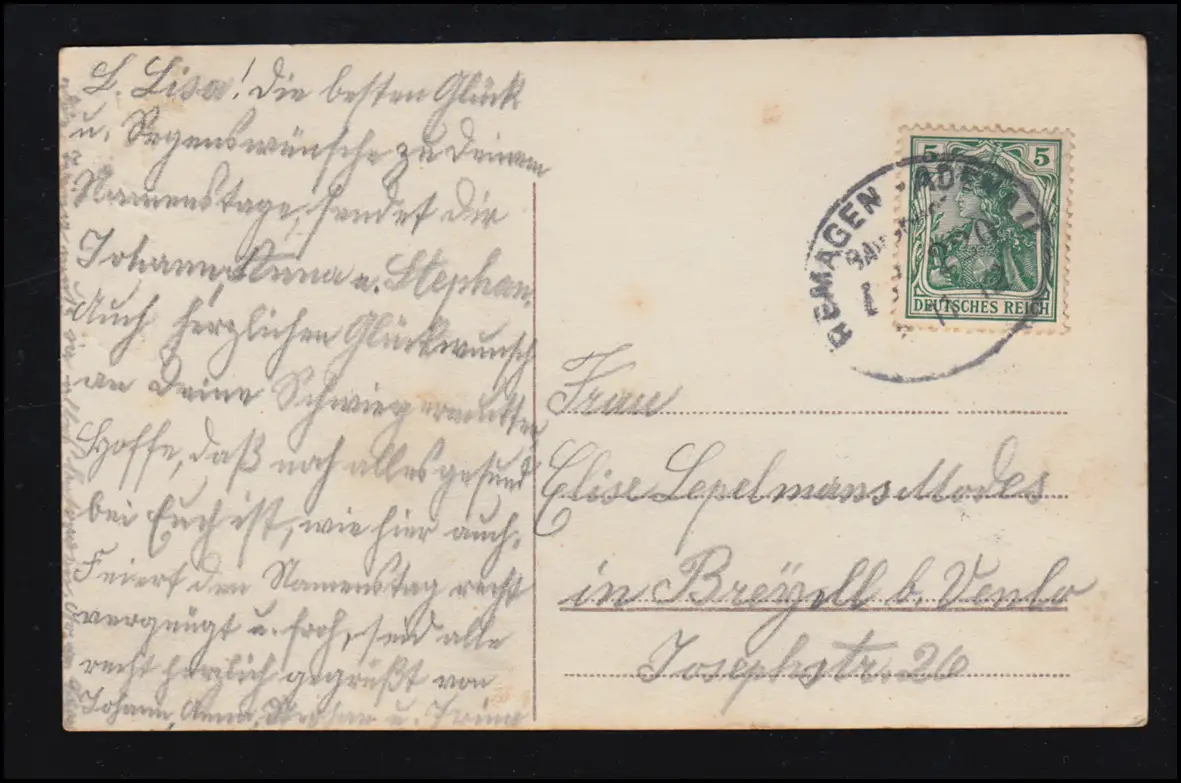 L. Lisa! Die besten Glück
u. Segenswünsche zu Deinem
Namenstage, sendet Dir
Johann, Anna u. Stephan.
Auch herzlichen Glückwunsch
an Deine Schwiegermutter,
Hoffe, daß noch alles gesund
bei Euch ist, wie hier auch.
Feiert den Namenstag recht
vergnügt u. froh, seid alle
recht herzlich gegrüßt von
Johann, Anna, Stephan u. Trina
5 5
DEUTSCHES REICH
REMAGEN - ADENAU
Frau
Elise Lepelmans Modes
in Breÿell b. Venlo
Josephstr. 26